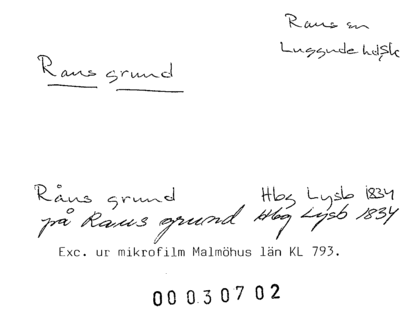 Raus sn
Luggude hdsk
Raus grund
Råus grund Hbg Lysb 1834
på Raus grund Hbg Lysb 1834
Exc. ur mikrofilm Malmöhus län KL 793.
00030702